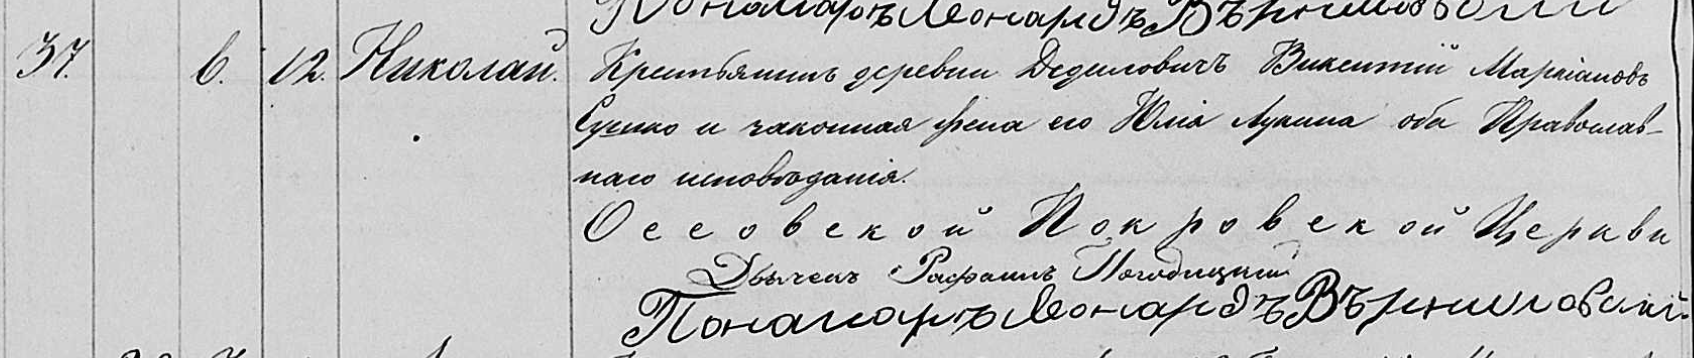 Понамаръ Леонардъ Вѣрниловскій
37. 6. 12. Николай. Крестьянинъ деревни Дедиловичъ Викентій Маркіановъ
Сушко и законная жена его Юлія Лукина оба Православ-
наго исповѣданія.
Оссовской Покровской Церкви
Дьячекъ Рафаилъ
Понамаръ Леонардъ Вѣрниловскій.